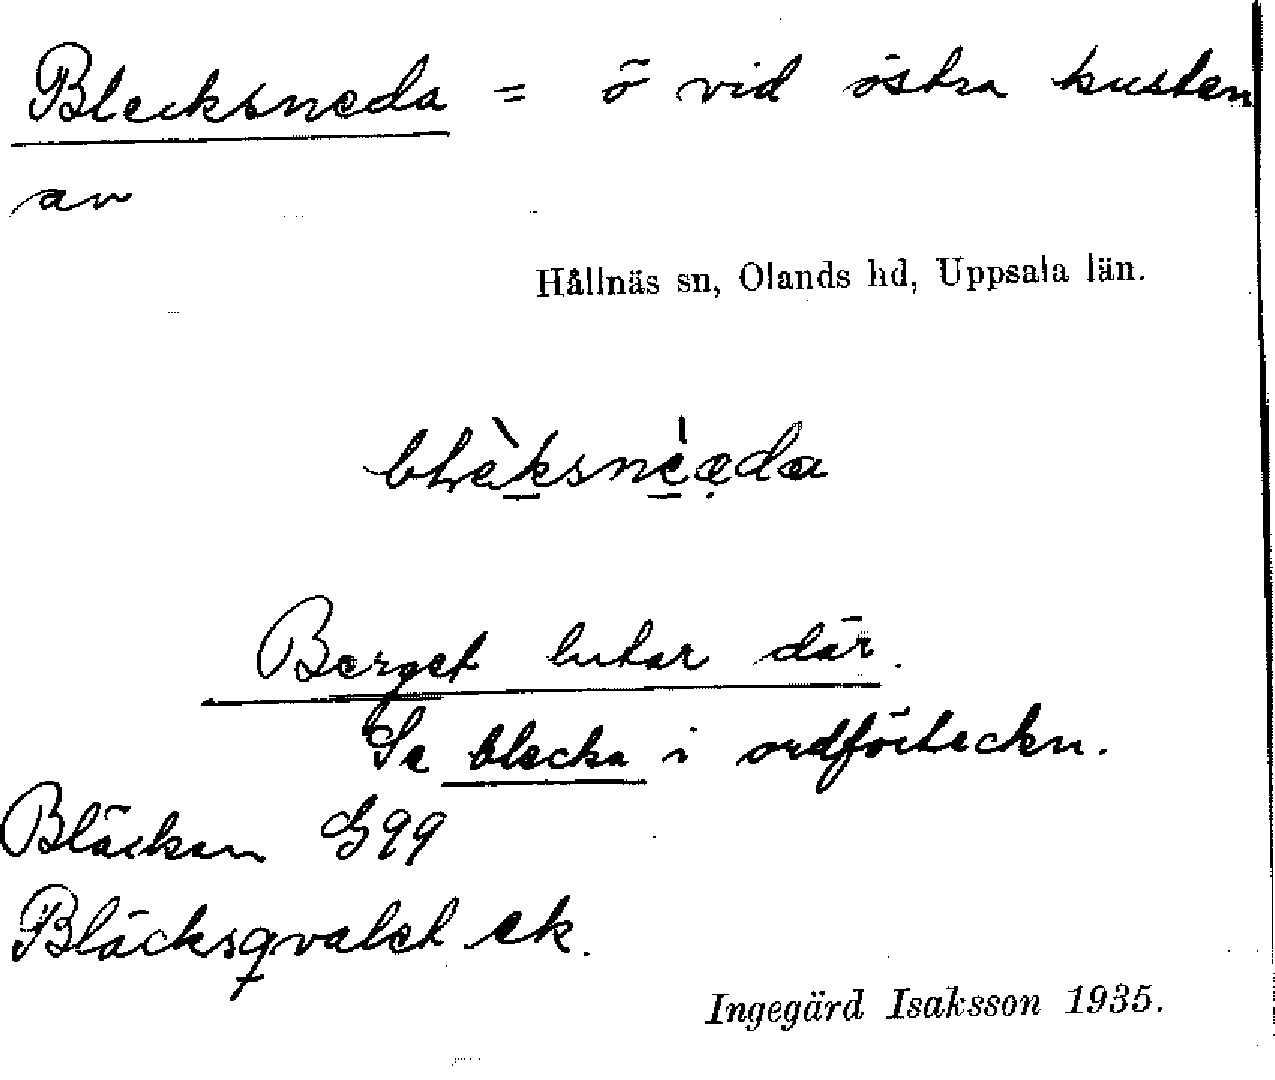 Blecksneda = ö vid östra kusten
av
Hållnäs sn, Olands hd, Uppsala län.
Berget lutar där.
Se blecka i ordförteckn.
Bläckan G99
Bläcksqvalet ek.
Ingegärd Isaksson 1935.